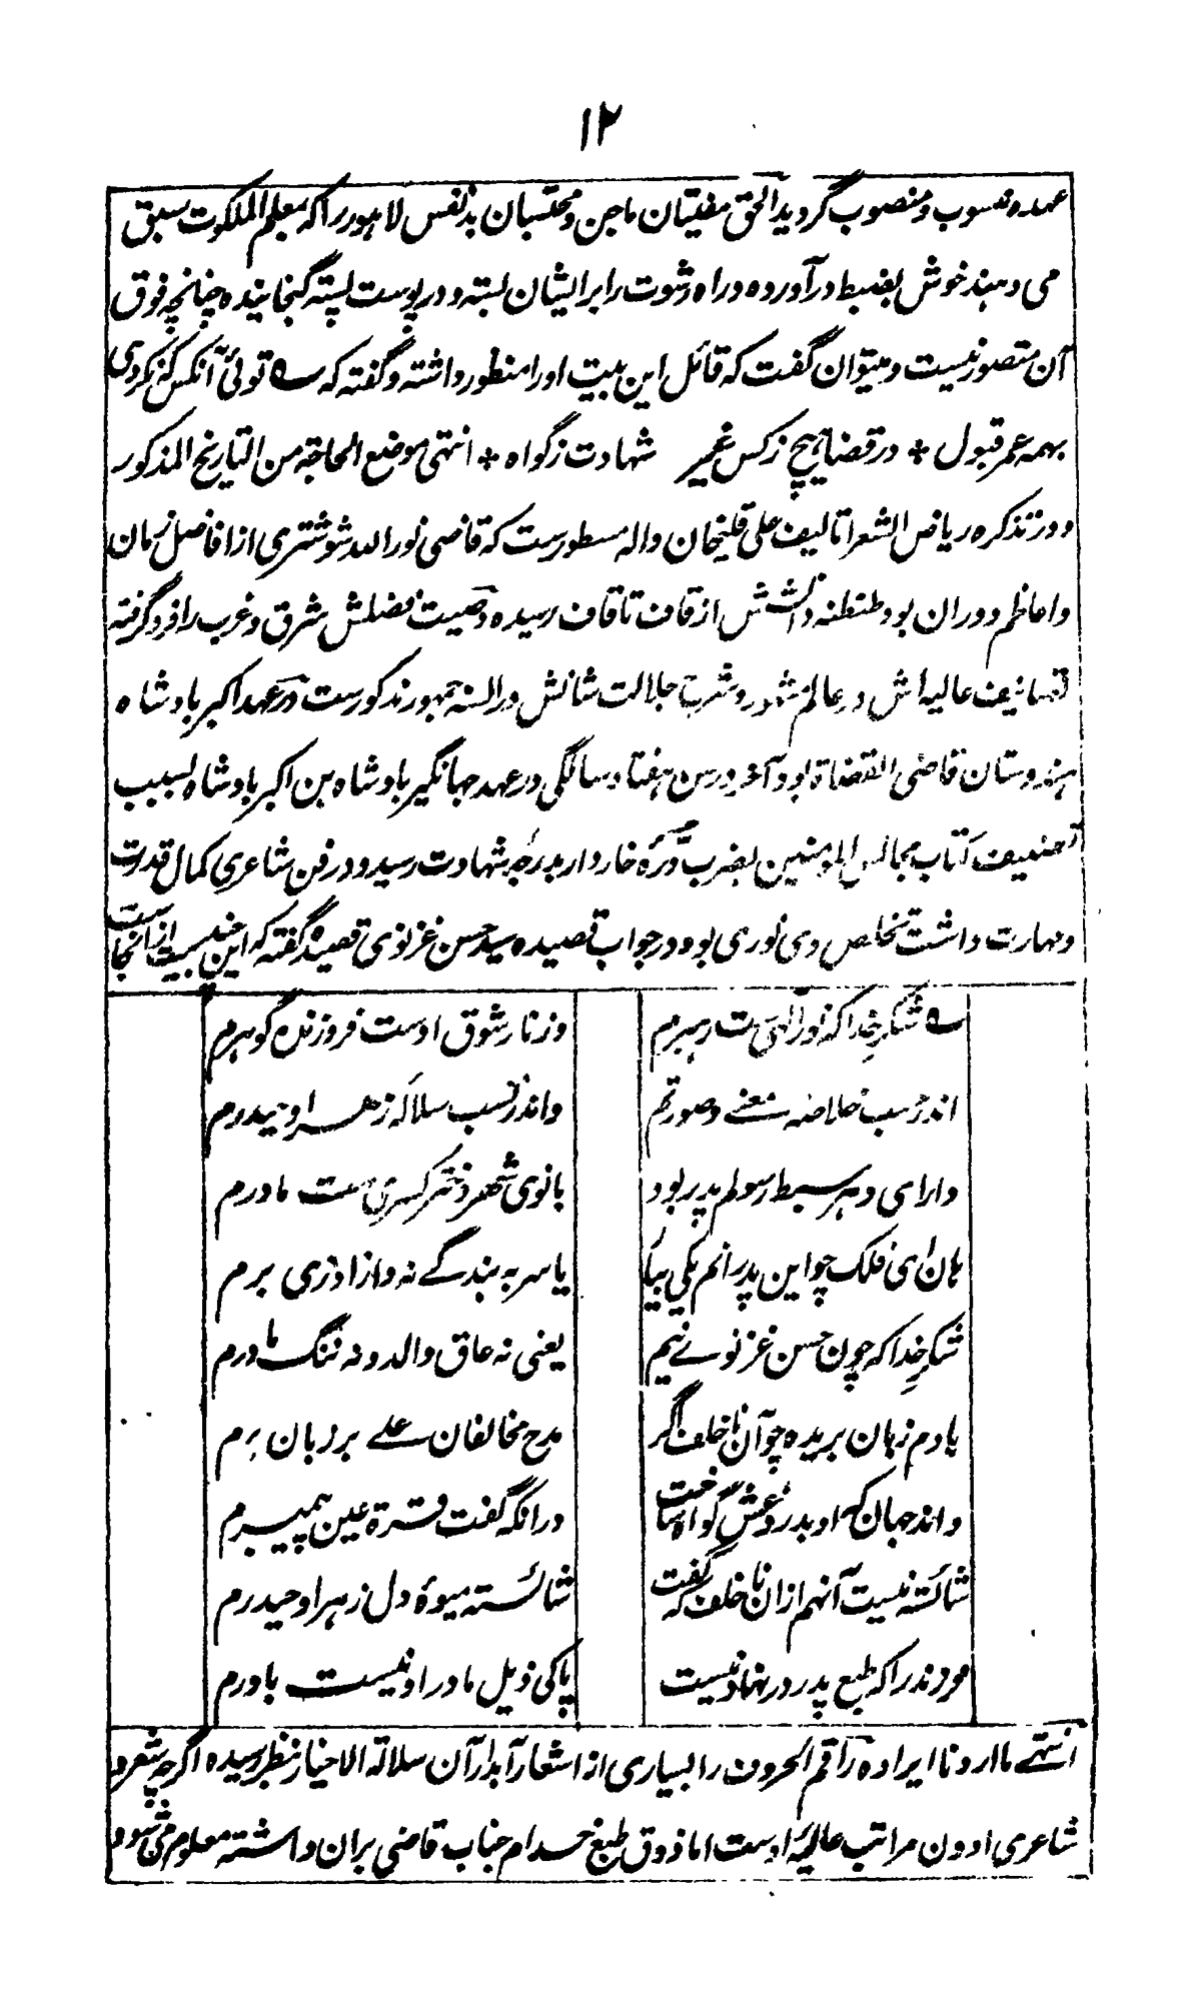 ۱۲
عهده منسوب و منصوب گردید الحق مفتیان ماجن و محتسبان بدنفس لاهور را که بمعلم الملکوت سبق
می دهند خوش بضبط در آورده و راه رشوت را بر ایشان بسته و در پوست پسته گنجانیده چنانچه فوق
آن متصور نیست و میتوان گفت که قائل این بیت او را منظور داشته و گفته که ؎ توئی آنکس که نکردی
بهمه عمر قبول * در قضا هیچ ز کس غیر شهادت ز گواه * انتهی موضع الحاجة من التاریخ المذکور
و در تذکره ریاض الشعرا تالیف علی قلیخان واله مسطورست که قاضی نور الله شوشتری از افاضل زمان
و اعاظم دوران بود طنطنه دانشش از قاف تا قاف رسیده و صیت فضلش شرق و غرب را فرو گرفته
تصانیف عالیه اش در عالم مشهور و شرب جلالت شانش در السنه جمهور مذکورست در عهد اکبر بادشاه
هندوستان قاضی القضاة بود آخر در سن هفتاد سالگی در عهد جهانگیر بادشاه بن اکبر بادشاه بسبب
تصنیف کتاب مجالس المومنین بضرب درّهٔ خاردار بدرجهٔ شهادت رسید و در فن شاعری کمال قدرت
و مهارت داشت تخلص وی نوری بود و در جواب قصیده سید حسن غزنوی قصیده گفته که این چند بیت از انجاست
؎ شکر خدا که نور الهی ست رهبرم وز نار شوق اوست فروزنده گوهرم
اندر حسب خلاصه معنے و صورتم واندر نسب سلالهٔ زهرا و حیدرم
دارای دهر سبط رسولم پدر بود بانوی شهر دختر کسری ست مادرم
هان ای فلک چو این پدرانم یکی بیا یا سر به بندگے نه و ازاد زی برم
شکر خدا که چون حسن غزنوے نیم یعنی نه عاق والد و نه ننگ مادرم
بادم زبان بریده چو آن نا خلف اگر مدح مخالفان علے بر زبان برم
واند جهان که او بدروغش گواه ساخت در انکه گفت قرة عین پیمبرم
شائسته نیست آنهم ازان نا خلف که گفت شائسته میوهٔ دل زهرا و حیدرم
مر وند را که طبع پدر در نهاد نیست پاکی ذیل مادر او نیست باورم
انتهے ما اردنا ایراده راقم الحروف را بسیاری از اشعار آبدار آن سلالة الاخیار بنظر رسیده اگرچه شعر و
شاعری ادون مراتب عالیهٔ اوست اما ذوق طبع خدام جناب قاضی بران داشته معلوم می شود